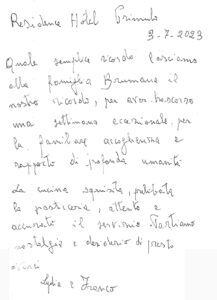 Residence Hotel Primula
3-7-2023
Quale semplice ricordo lasciamo
alla famiglia Brumana il
nostro ricordo, per aver trascorso
una settimana eccezionale per
la familiare accoglienza e
rapporto di profonda umanità
La cucina squisita, prelibata
la pasticceria, attento e
accurato il servizio Partiamo
nostalgia e desiderio di presto
Lydia e Franco